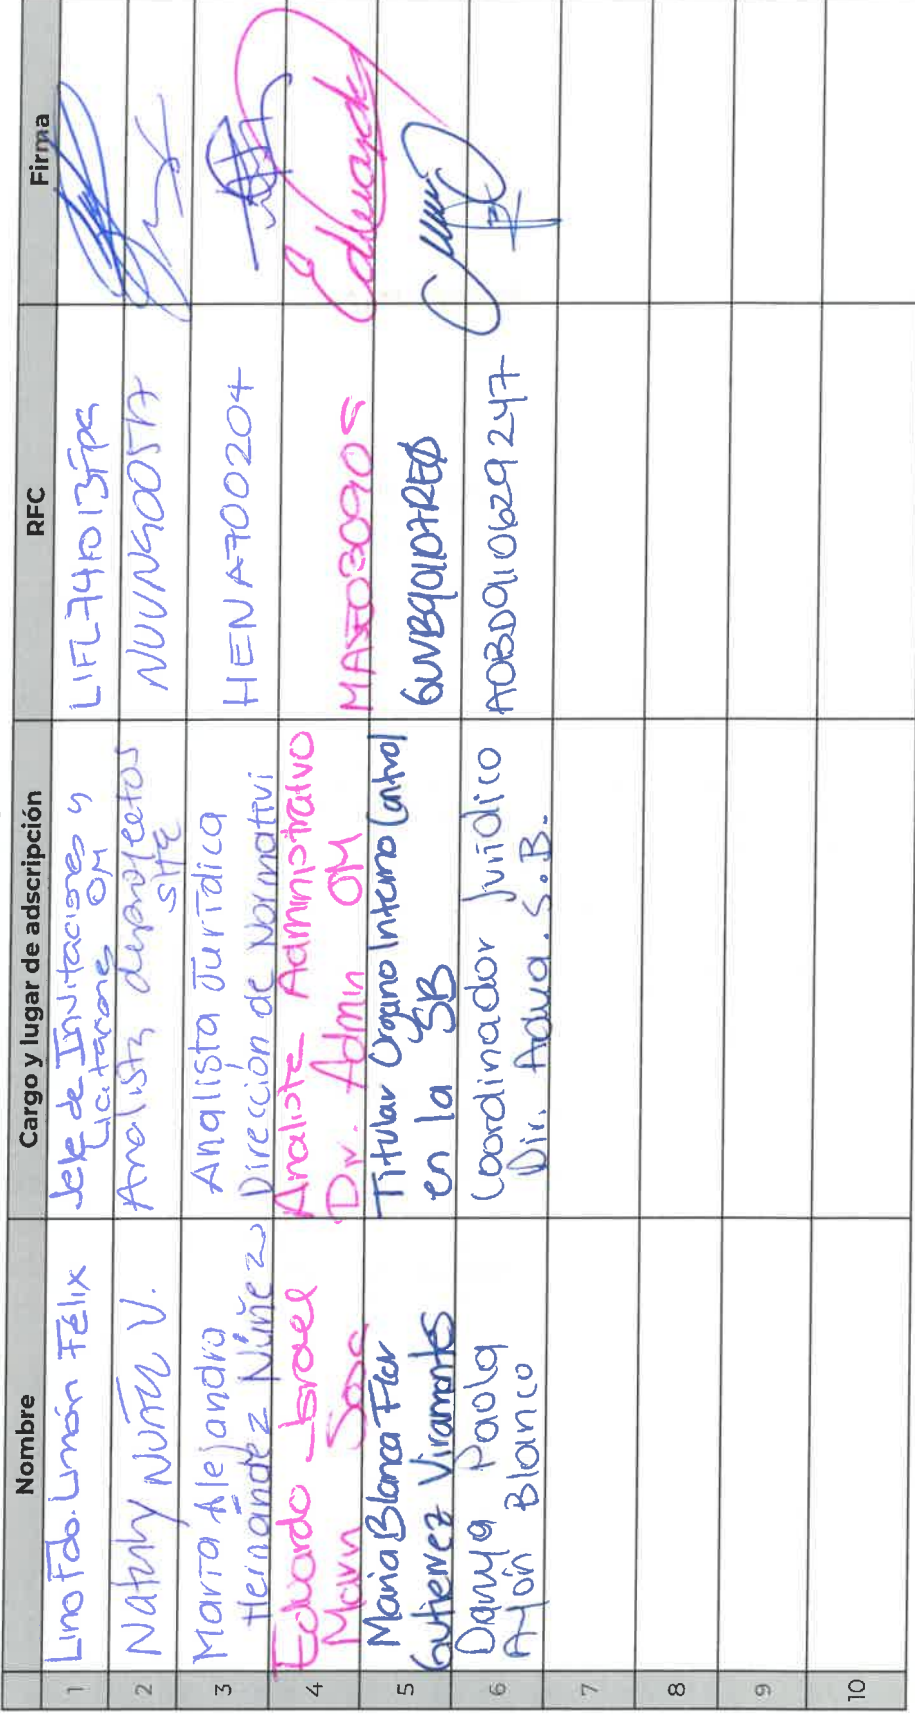 Nombre
Cargo y lugar de adscripción
RFC
Firma
1
Lino Fdo. Limón Félix
Jefe de Invitaciones y
Licitaciones OM
LIFL741013FP9
2
Nathly Núñez V.
Analista de proyectos
SHE
NUVN900517
3
María Alejandra
Hernández Núñez
Analista Jurídica
Dirección de Normativi
HENA700204
4
Eduardo Israel
Marin Sosa
Analista Administrativo
Dir. Admin OM
5
Maria Blanca Flor
Gutierrez Viramontes
Titular Organo Interno Control
en la SB
GUVB901107REØ
Eduardo
6
Danya Paola
Ayón Blanco
Coordinador Jurídico
Dir. Adva. S.B.
AOBD910629247
7
8
9
10